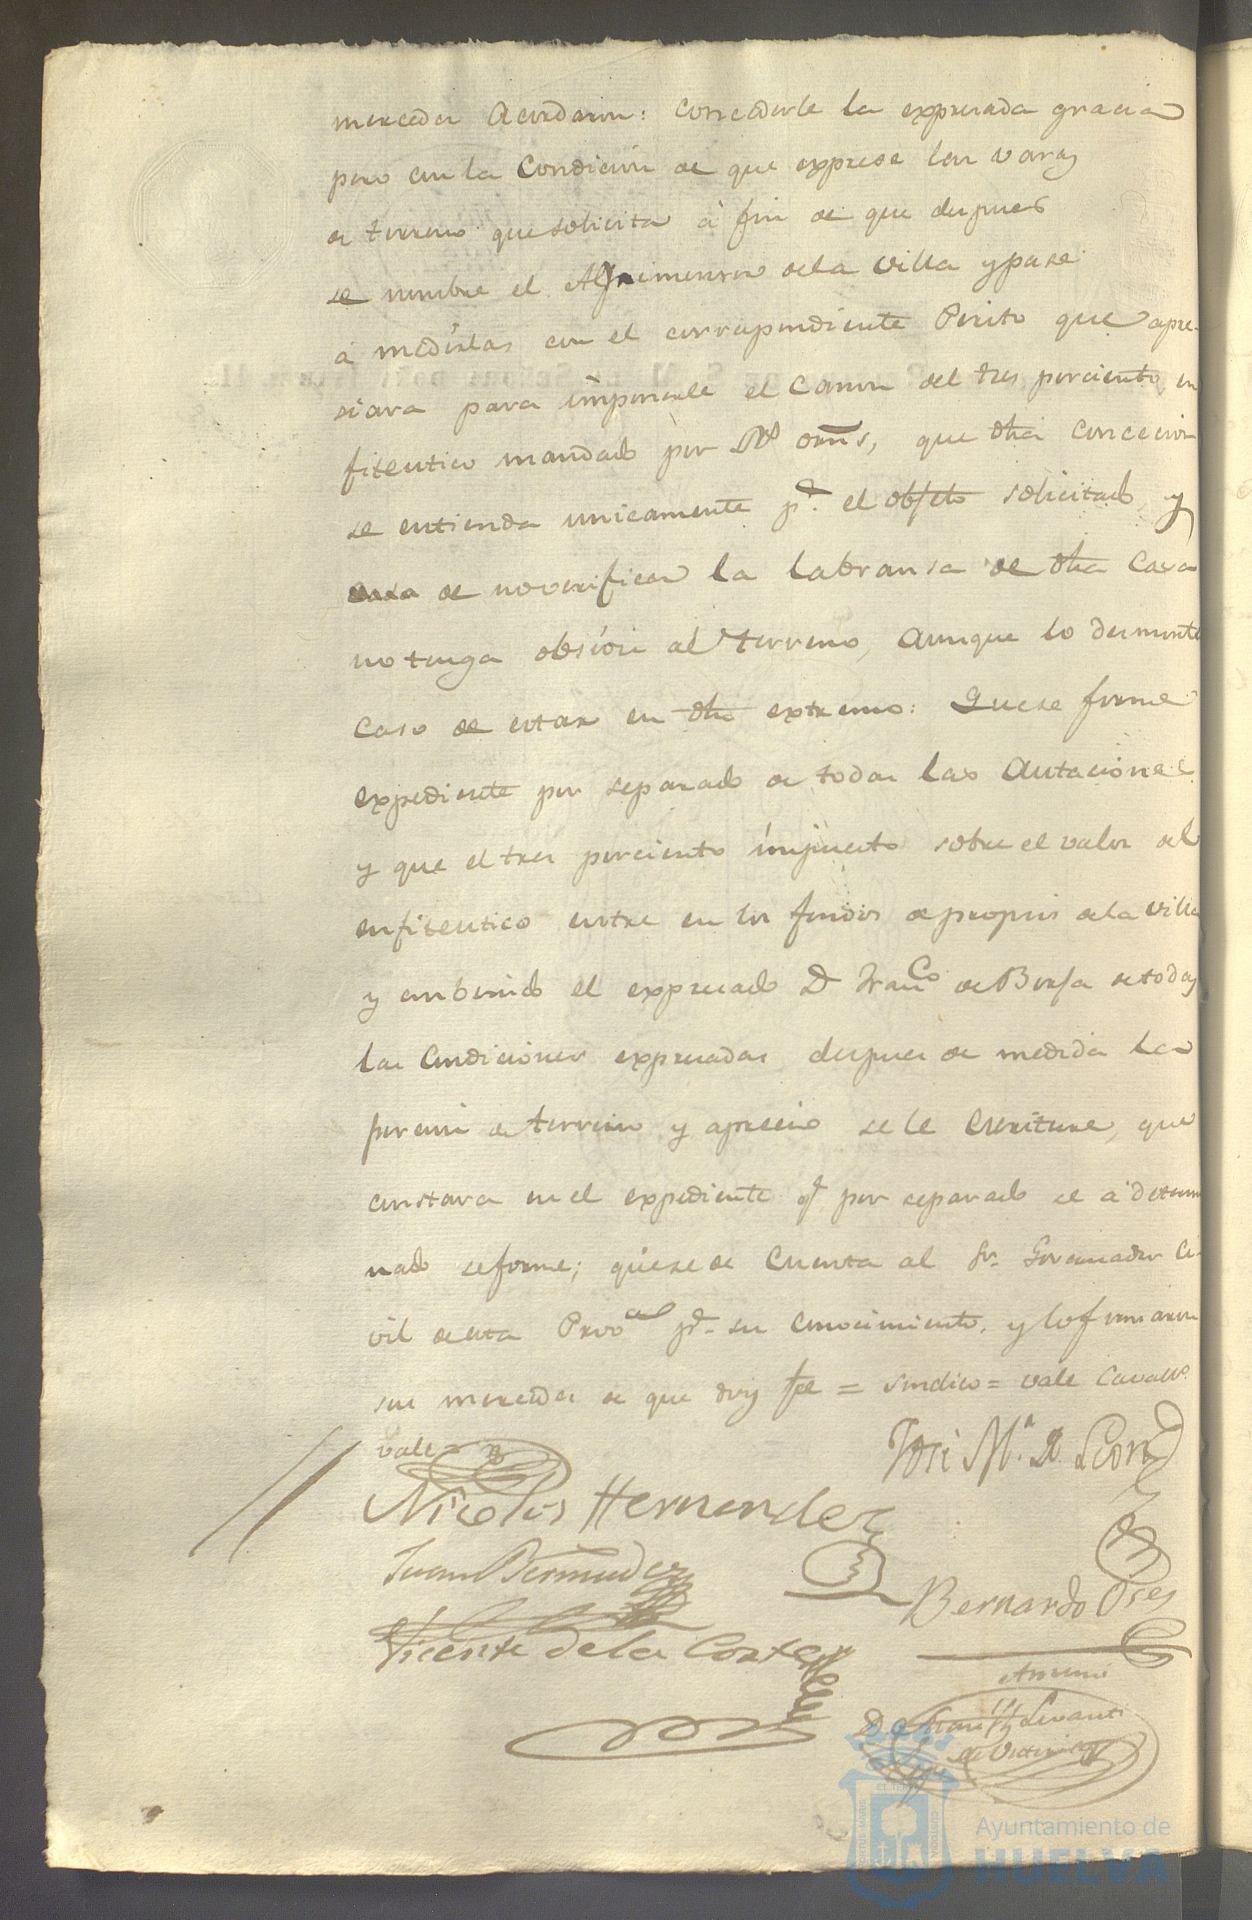 mercedes Acordaron: concederle la expresada gracia
pero con la Condicion de que exprese las varas
de terreno que solicita à fin de que despues
se nombre el Agrimensor dela villa y pase
à medirlas con el correspondiente Perito que apre-
siara para imponerle el Canon del tres porciento en
fiteutico mandado por Rs orns, que dha concecion
se entienda unicamente pa. el objeto solicitado, y
de no verificar la labransa de dha Casa
no tenga obsion al terreno, aunque lo desmonte
caso de estar en dho extremo: Que se forme
expediente por separado de todas las Autaciones
y que el tres porciento impuesto sobre el valor del
enfiteutico entre en los fondos de propios dela villa
y conbenido el expresado D Franco de Borja de todas
las Condiciones expresadas despues de medida la
porcion de terreno y aprecio se le escriture, que
constara en el expediente q por separado se à determi
nado se forme; que se de Cuenta al Sr. Governador Ci-
vil de esta Provcal pa. su conocimiento, y lo firmaron
sus mercedes de que doy fe = sindico = vale Cavallo
vale=
José Ma. de Leon
Nicolás Hernandez
Juan Bermudez
Bernardo Oses
Vicente de la Corte
Antemi
D. Levanti
de Vides
Ayuntamiento de
HUELVA